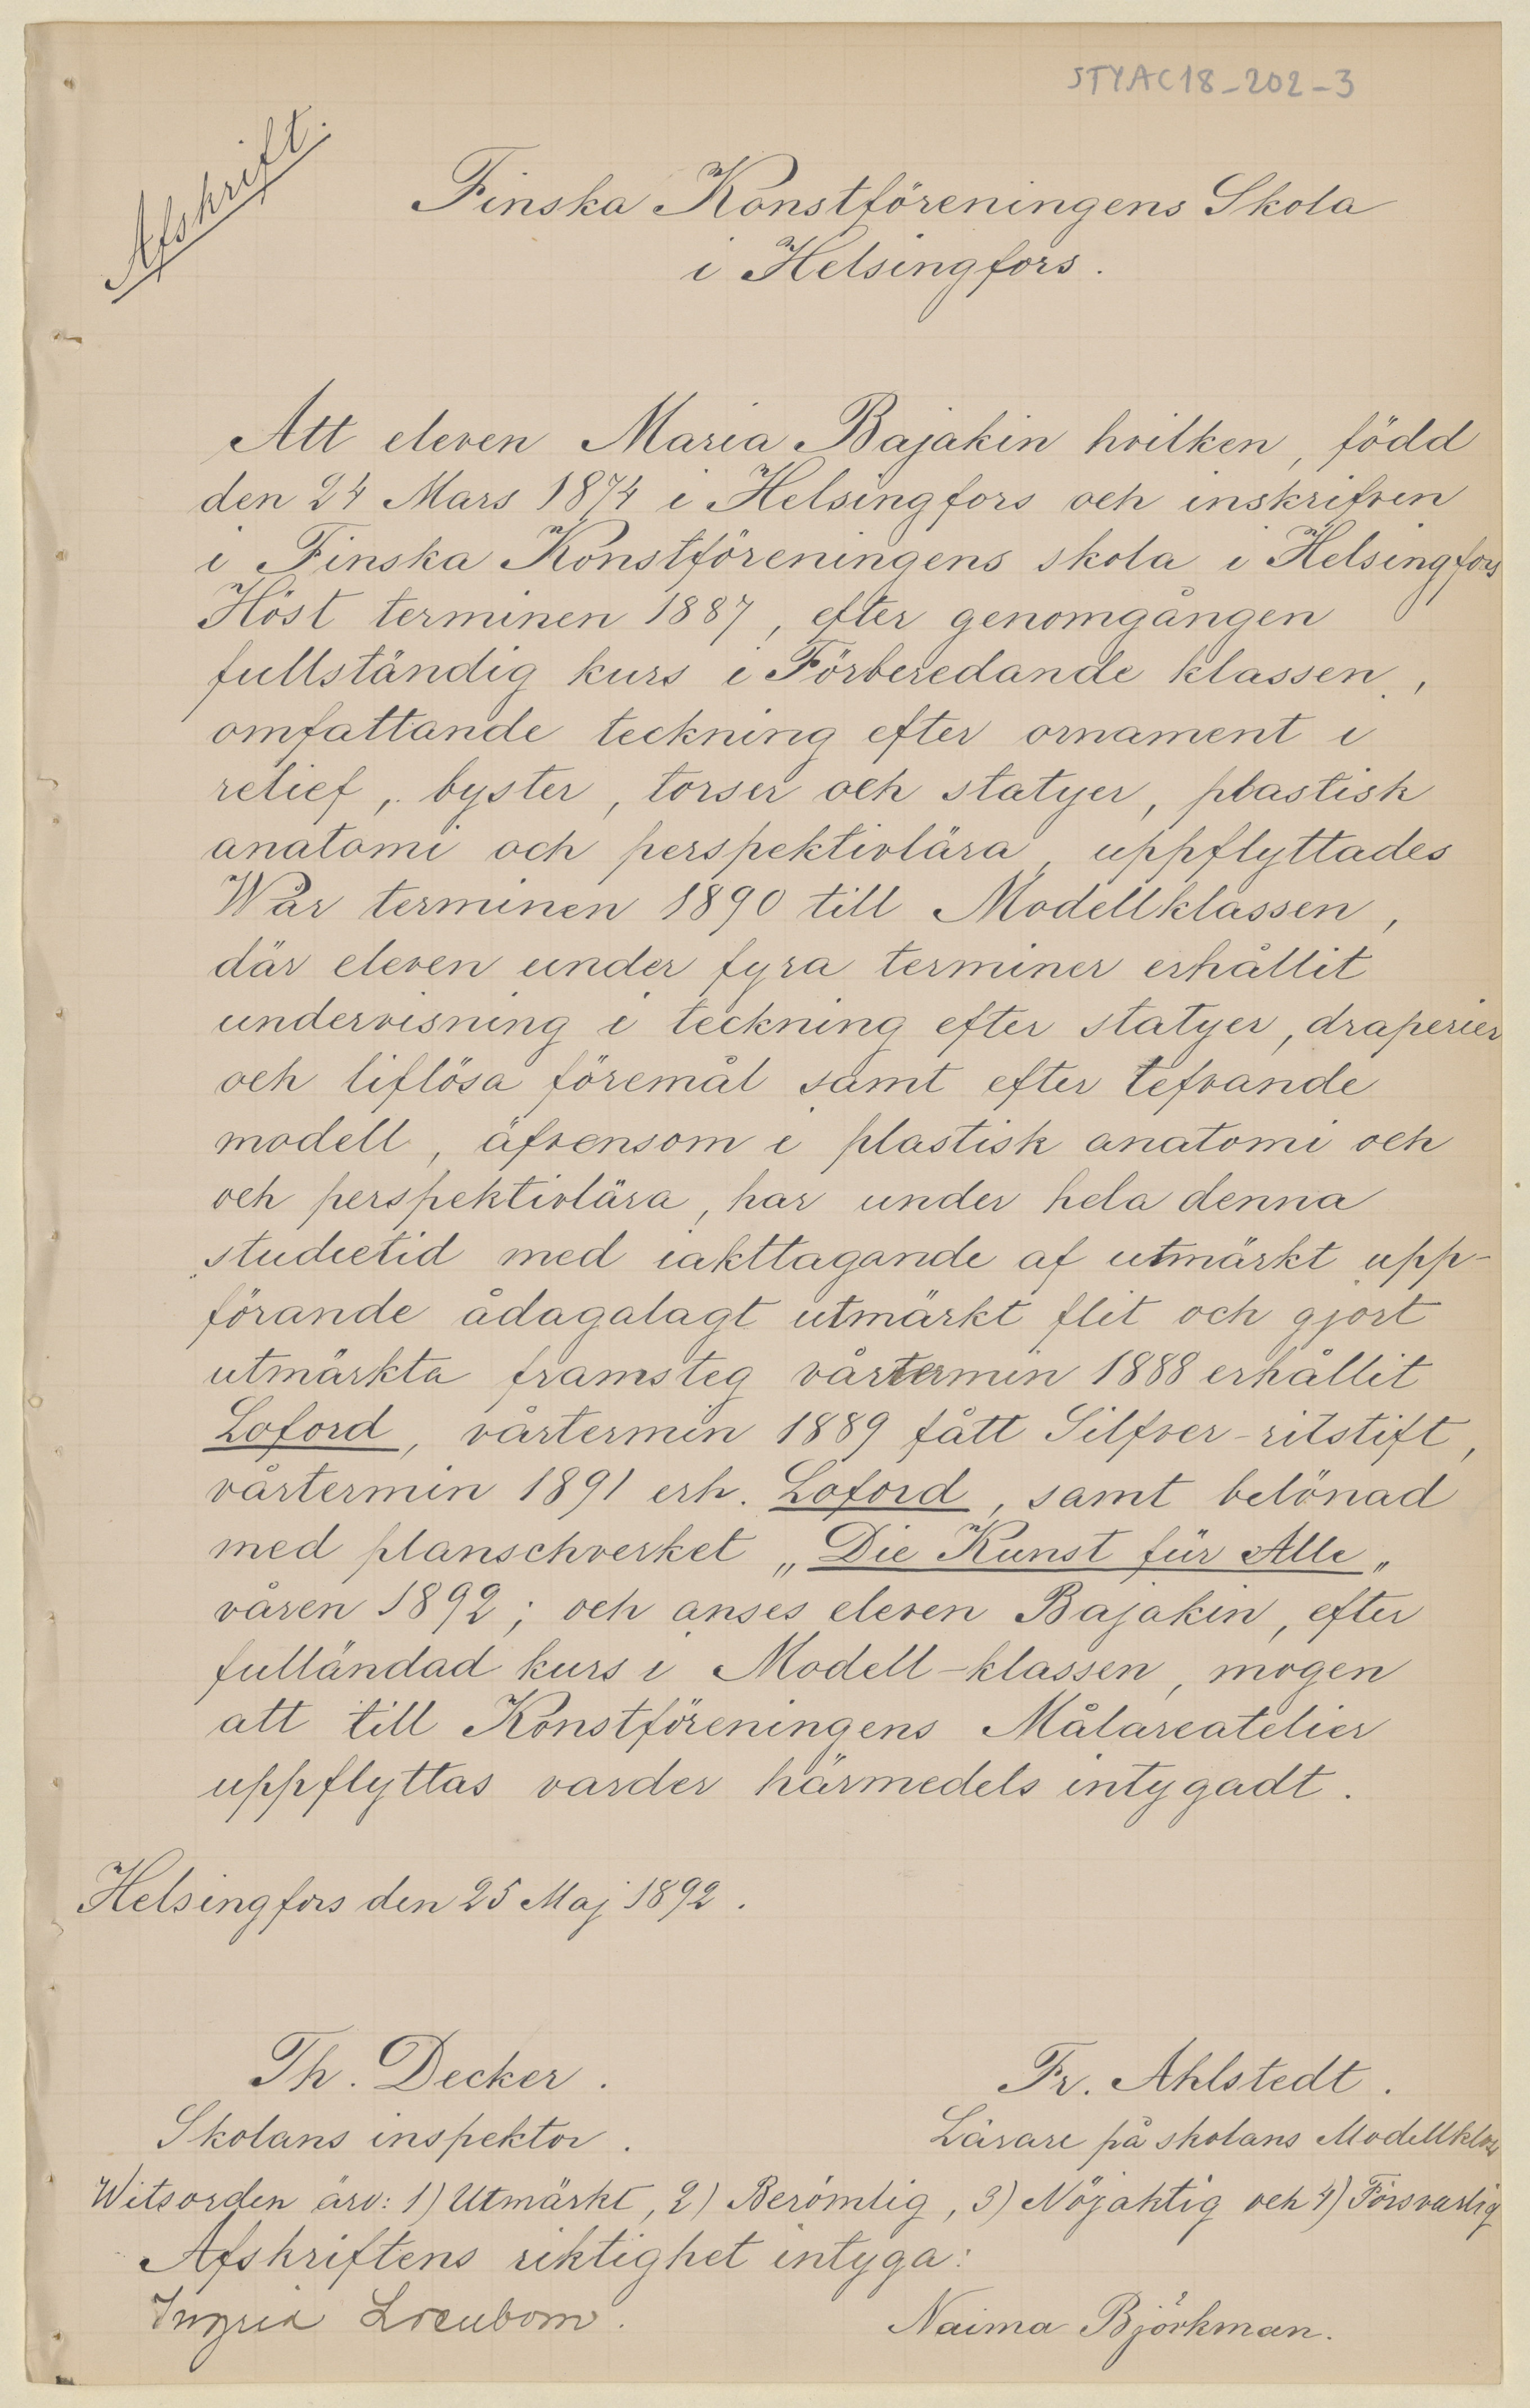 STYAC18-202-3
Afskrift.
Finska Konstföreningens Skola
i Helsingfors.
Att eleven Maria Bajakin hvilken, född
den 24 Mars 1874 i Helsingfors och inskrifven
i Finska Konstföreningens skola i Helsingfors
Höst terminen 1887, efter genomgången
fullständig kurs i Förberedande klassen,
omfattande teckning efter ornament i
relief, byster, torser och statyer, plastisk
anatomi och perspektivlära, uppflyttades
Wår terminen 1890 till Modellklassen,
där eleven under fyra terminer erhållit
undervisning i teckning efter statyer, draperier
och liflösa föremål samt efter lefvande
modell, äfvensom i plastisk anatomi och
och perspektivlära, har under hela denna
studietid med iakttagande af utmärkt upp-
förande ådagalagt utmärkt flit och gjort
utmärkta framsteg vårtermin 1888 erhållit
Loford, vårtermin 1889 fått Silfver-ritstift,
vårtermin 1891 erh. Loford, samt belönad
med planschverket „Die Kunst für Alle„
våren 1892; och anses eleven Bajakin, efter
fulländad kurs i Modell-klassen, mogen
att till Konstföreningens Målareatelier
uppflyttas varder härmedels intygadt.
Helsingfors den 25 Maj 1892.
Th. Decker. Fr. Ahlstedt.
Skolans inspektor. Lärare på skolans Modellklass
Witsorden äro: 1) Utmärkt, 2) Berömlig, 3) Nöjaktig och 4) Försvarlig
Afskriftens riktighet intyga:
Ingrid Naima Björkman.